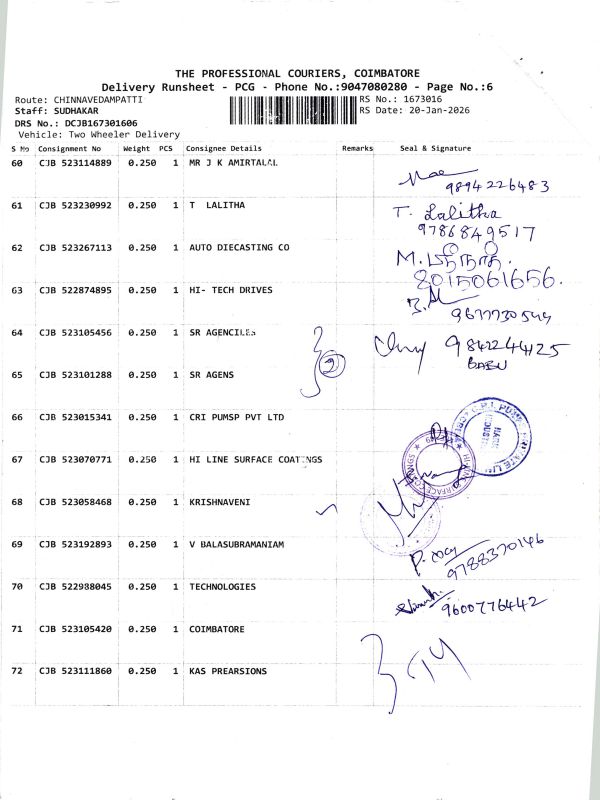 THE PROFESSIONAL COURIERS, COIMBATORE
Delivery Runsheet - PCG - Phone No.:9047080280 - Page No.:6
Route: CHINNAVEDAMPATTI
Staff: SUDHAKAR
DRS No.: DCJB167301606
Vehicle: Two Wheeler Delivery
RS No.: 1673016
RS Date: 20-Jan-2026
S No Consignment No Weight PCS Consignee Details Remarks Seal & Signature
60 CJB 523114889 0.250 1 MR J K AMIRTALAL
9894226483
61 CJB 523230992 0.250 1 T LALITHA T. Lalitha
9786849517
62 CJB 523267113 0.250 1 AUTO DIECASTING CO M.
8015061656.
63 CJB 522874895 0.250 1 HI- TECH DRIVES
9677730544
64 CJB 523105456 0.250 1 SR AGENCILES 9842244125
BABU
65 CJB 523101288 0.250 1 SR AGENS 2
66 CJB 523015341 0.250 1 CRI PUMSP PVT LTD
67 CJB 523070771 0.250 1 HI LINE SURFACE COATINGS
68 CJB 523058468 0.250 1 KRISHNAVENI
69 CJB 523192893 0.250 1 V BALASUBRAMANIAM
9788370146
70 CJB 522988045 0.250 1 TECHNOLOGIES
9600776442
71 CJB 523105420 0.250 1 COIMBATORE
72 CJB 523111860 0.250 1 KAS PREARSIONS